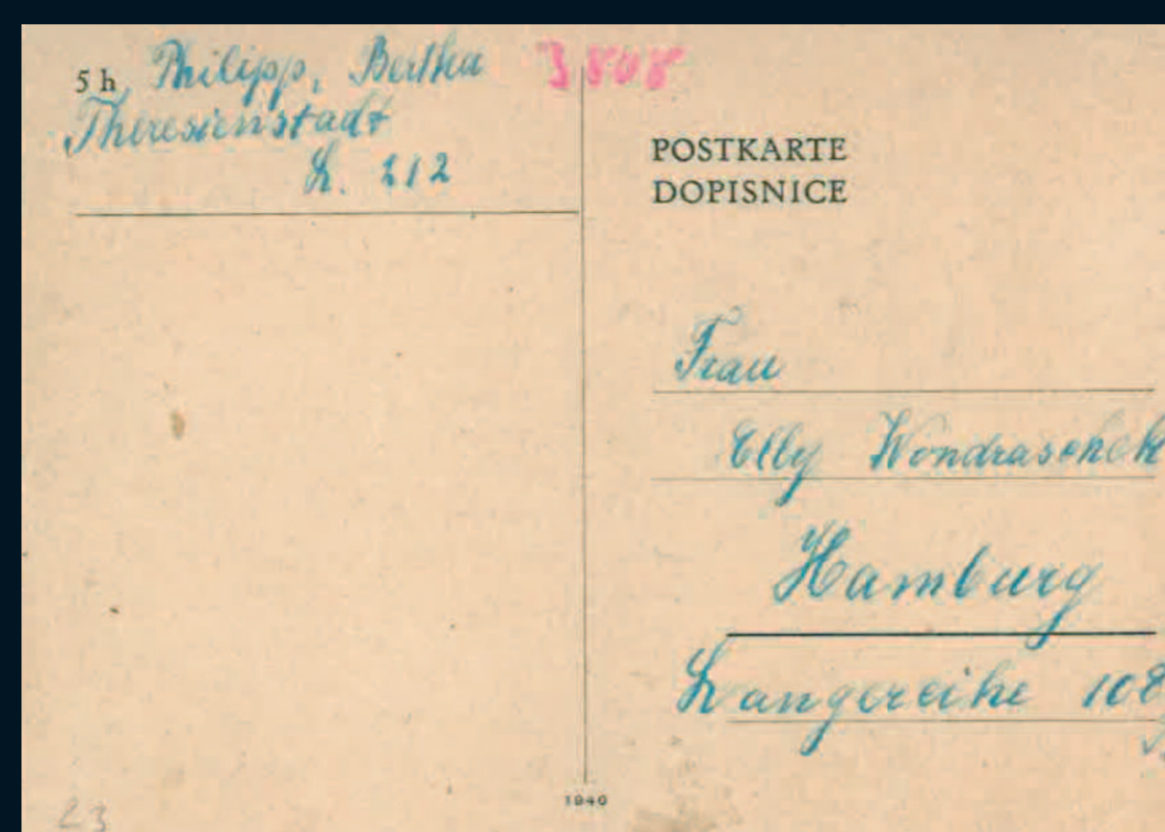 5 h Philipp, Bertha 3808
Theresienstadt
L. 212
POSTKARTE
DOPISNICE
Frau
Elly Wondraschek
Hamburg
Langereihe 108
1940
23